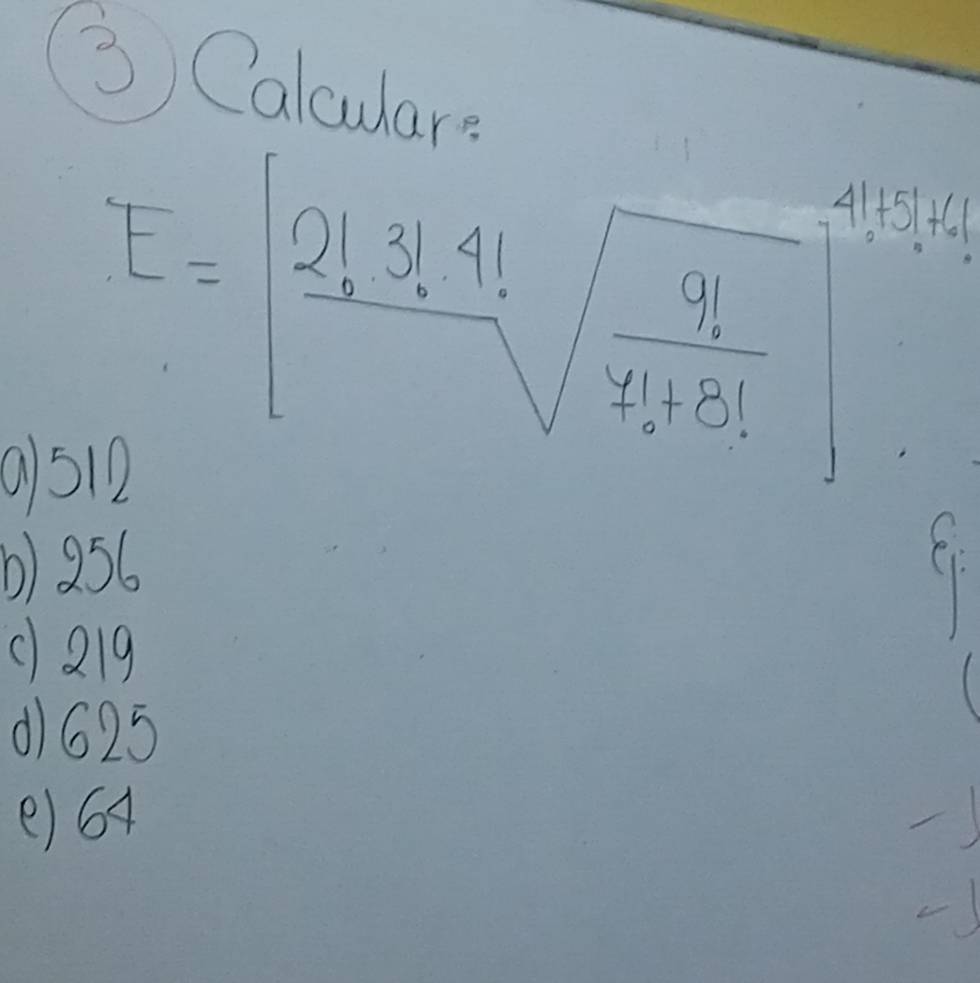 3 Calcular:
E = [ 2! . 3! . 4! √ 9! / 7! + 8! ] 4!+5!+6!
a) 512
b) 256
c) 219
d) 625
e) 64
Ej: